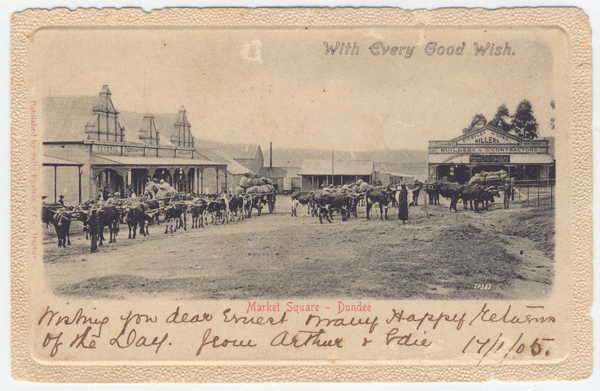 With Every Good Wish.
HILLERS
BUILDERS & CONTRACTORS
Market Square - Dundee
Wishing you dear Ernest Many Happy Returns
of the Day. from Arthur & Edie 17/1/05.